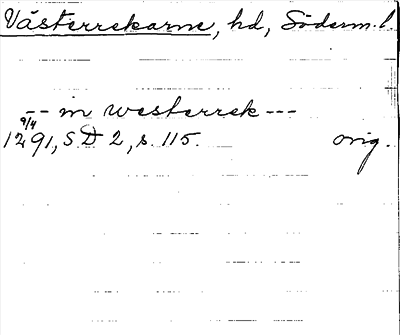 Västerrekarne, hd, Söderm. l.
-- in westerrek ---
9/4
1291, S D 2, s. 115. orig.